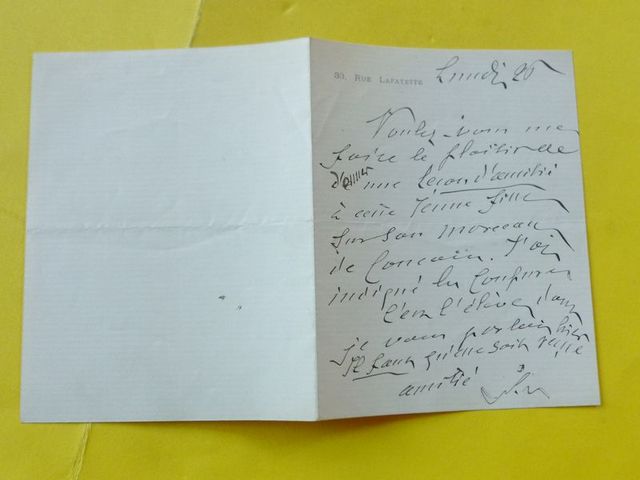 80, RUE LAFAYETTE
Lundi 26
Voulez-vous me
faire le plaisir de
donner une leçon d'amitié
à cette jeune fille
sur son morceau
de Concours. J'ai
indiqué les
C'est l'élève dont
je vous parlais hier
Il faut qu'elle soit
amitié